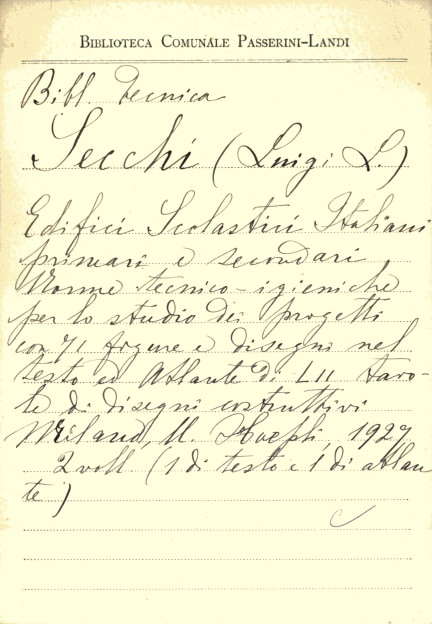 BIBLIOTECA COMUNALE PASSERINI-LANDI
Bibl. tecnica
Secchi (Luigi L.)
Edifici Scolastici Italiani
primari e secondari
Norme tecnico-igieniche
per lo studio dei progetti
con 71 figure e disegni nel
testo ed Atlante di LII tavo-
le di disegni costruttivi
Milano, U. Hoepli, 1927
2 voll. (1 di testo e 1 di atlan
te)